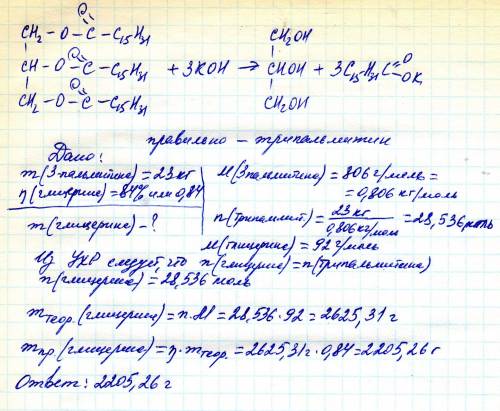 CH₂ - O - C(=O) - C₁₅H₃₁
CH - O - C(=O) - C₁₅H₃₁ + 3KOH → CH₂OH CHOH CH₂OH + 3C₁₅H₃₁C(=O)OK
CH₂ - O - C(=O) - C₁₅H₃₁
правильно – трипальмитин
Дано:
m(3-пальмитина) = 23 кг
η(глицерина) = 84% или 0,84
m(глицерина) - ?
M(3пальмитина) = 806 г/моль =
= 0,806 кг/моль
n(трипалмит) = 23 кг / 0,806 кг/моль = 28,536 моль
M(глицерина) = 92 г/моль
Из УХР следует, что n(глицерина) = n(трипальмитина)
n(глицерина) = 28,536 моль
m теор. (глицерина) = n·M = 28,536·92 = 2625,31 г
m пр. (глицерина) = η·m теор. = 2625,31 г·0,84 = 2205,26 г
Ответ: 2205,26 г